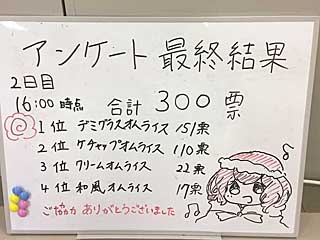 アンケート 最終結果
2日目
16:00 時点 合計 300 票
1位 デミグラスオムライス 151票
2位 ケチャップオムライス 110票
3位 クリームオムライス 22票
4位 和風オムライス 17票
ご協力 ありがとうございました